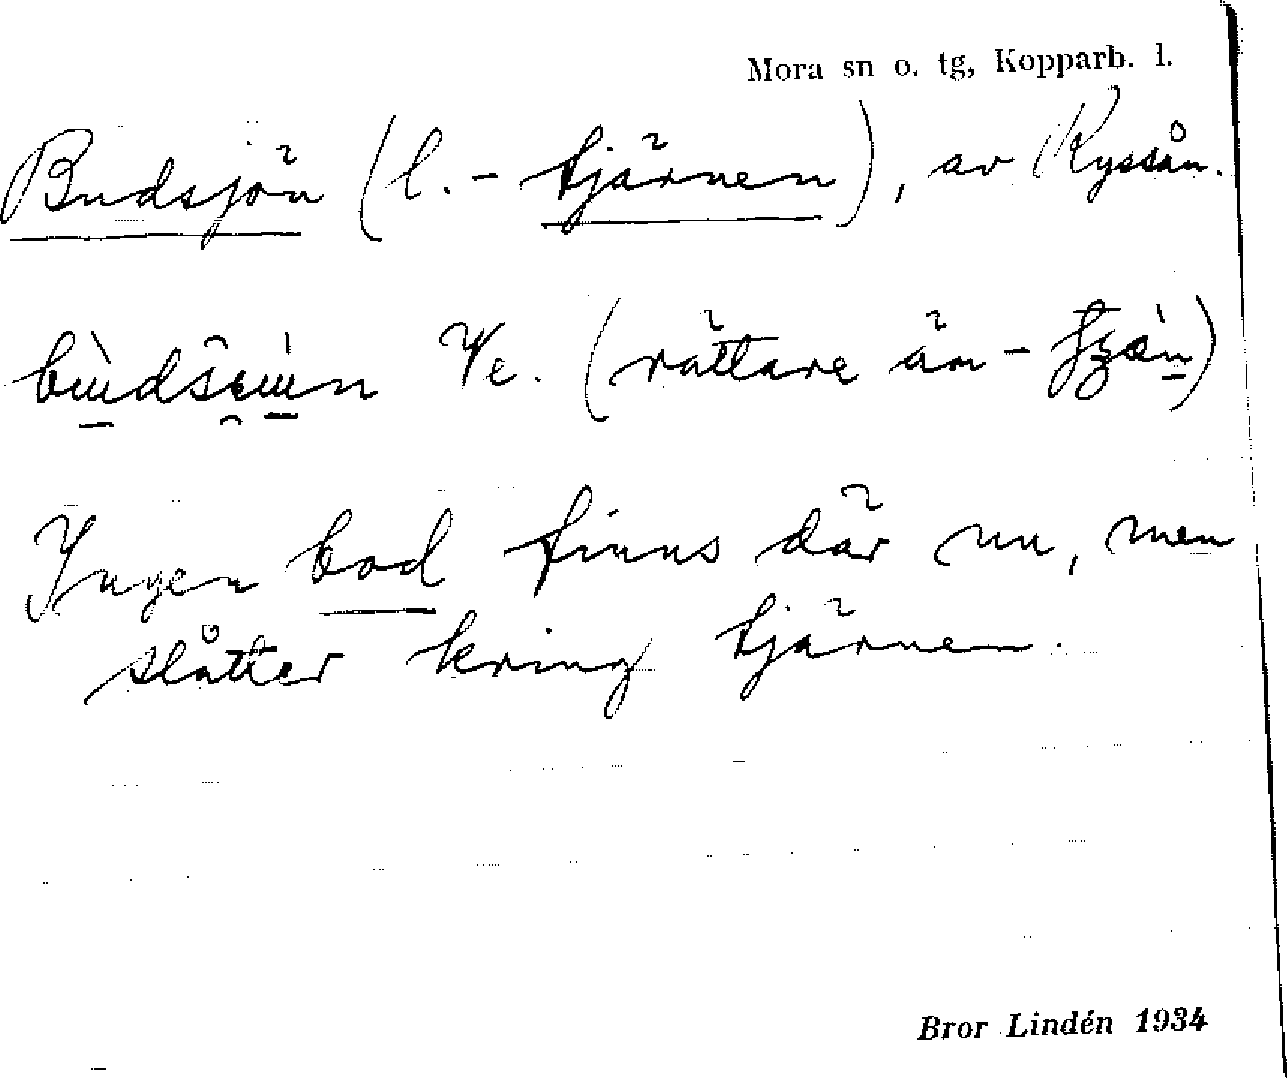 Mora sn o. tg, Kopparb. l.
Budsjön (l. - tjärnen), av Ryssån.
Ve. (rättare än -
Ingen bod finns där nu, men
slåtter kring tjärnen.
Bror Lindén 1934